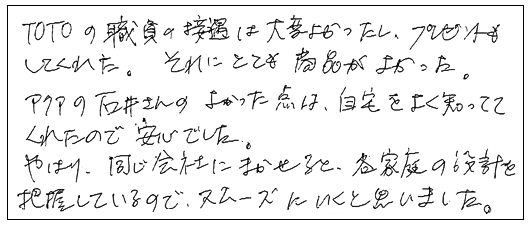 TOTOの職員の接遇は大変よかったし、プレゼントも
してくれた。それにとても商品がよかった。
アクアの石井さんのよかった点は、自宅をよく知ってて
くれたので安心でした。
やはり、同じ会社にまかせると、各家庭の設計を
把握しているので、スムーズにいくと思いました。